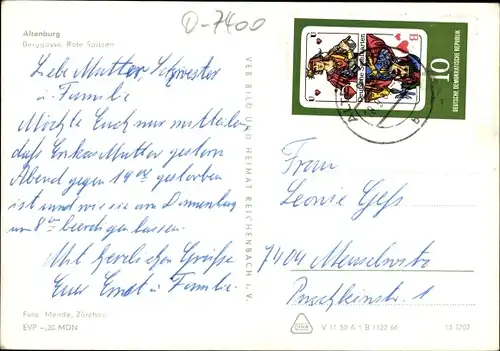 Altenburg
Berggasse, Rote Spitzen
O-7400
Liebe Mutter Schwester
u. Familie
Möchte Euch nur mitteilen
daß Erikas Mutter gestern
Abend gegen 19 00 gestorben
ist und wir sie am Donnerstag
um 8 00 beerdigen lassen.
Mit herzlichen Grüße
Euer Ernst u. Familie.
Foto: Mende, Zürchau
EVP -,20 MDN
VEB BILD UND HEIMAT REICHENBACH i. V.
10
DEUTSCHE DEMOKRATISCHE REPUBLIK
U
B
Frau
Leonie
7404 Meuselwitz
Puschkinstr. 1
V 11 50 A 1 B 1122 66
13 3202